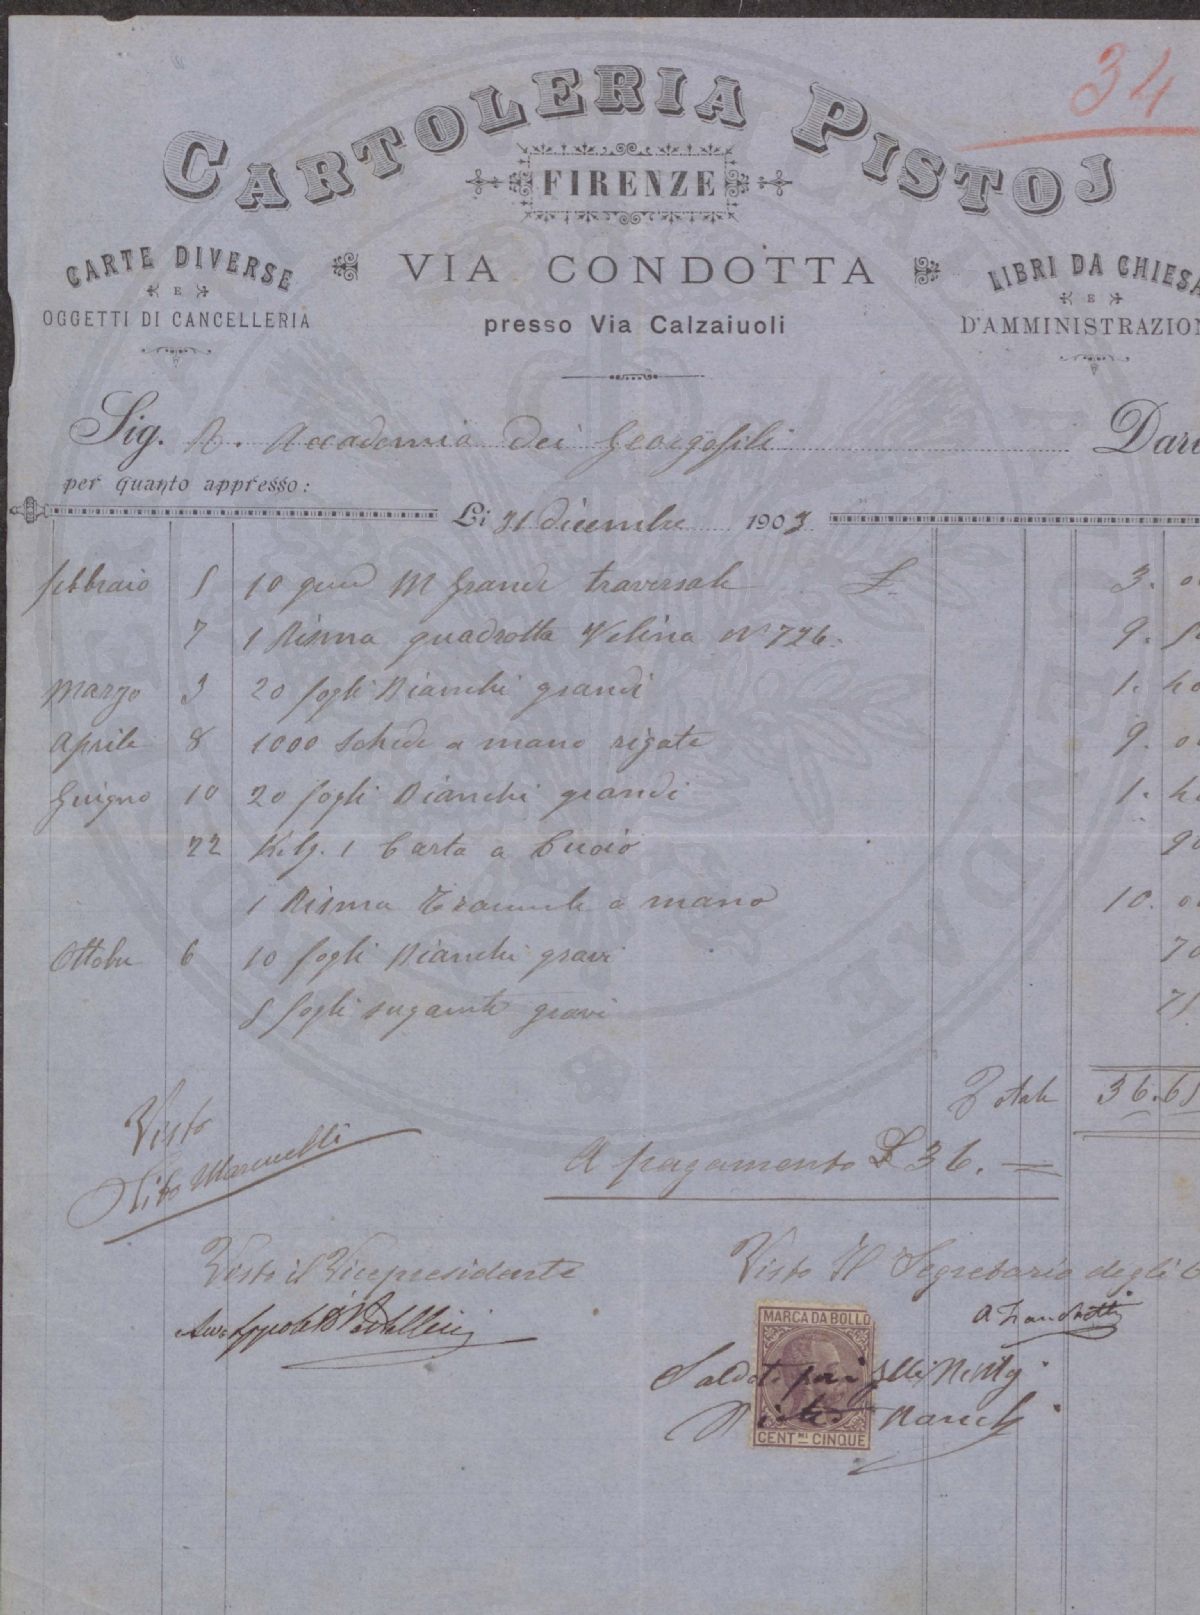 34
CARTOLERIA PISTOJ
FIRENZE
CARTE DIVERSE
E
OGGETTI DI CANCELLERIA
VIA CONDOTTA
presso Via Calzaiuoli
LIBRI DA CHIESA
E
D'AMMINISTRAZION
Sig. R. Accademia dei Georgofili Dar
per quanto appresso:
Li 31 dicembre 1903
febbraio 5 10 M Grandi traversale £. 3. 0
7 1 Risma quadrotta Velina N° 726. 9. 5
Marzo 3 20 fogli Bianchi grandi 1. 40
Aprile 8 1000 schede a mano rigate 9. 0
Giugno 10 20 fogli Bianchi grandi 1. 4
22 Kilg. 1 Carta a Cuoio 90
1 Risma a mano 10. 0
Ottobre 6 10 fogli Bianchi gravi 70
5 fogli sugante gravi 75
Totale 36.65
A pagamento £ 36. =
Visto
Visto il Vicepresidente
Visto Il Segretario degli
MARCA DA BOLLO
Saldato per
CENT.MI CINQUE